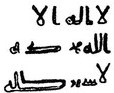 لا اله الا
الله وحده
لا شريك له